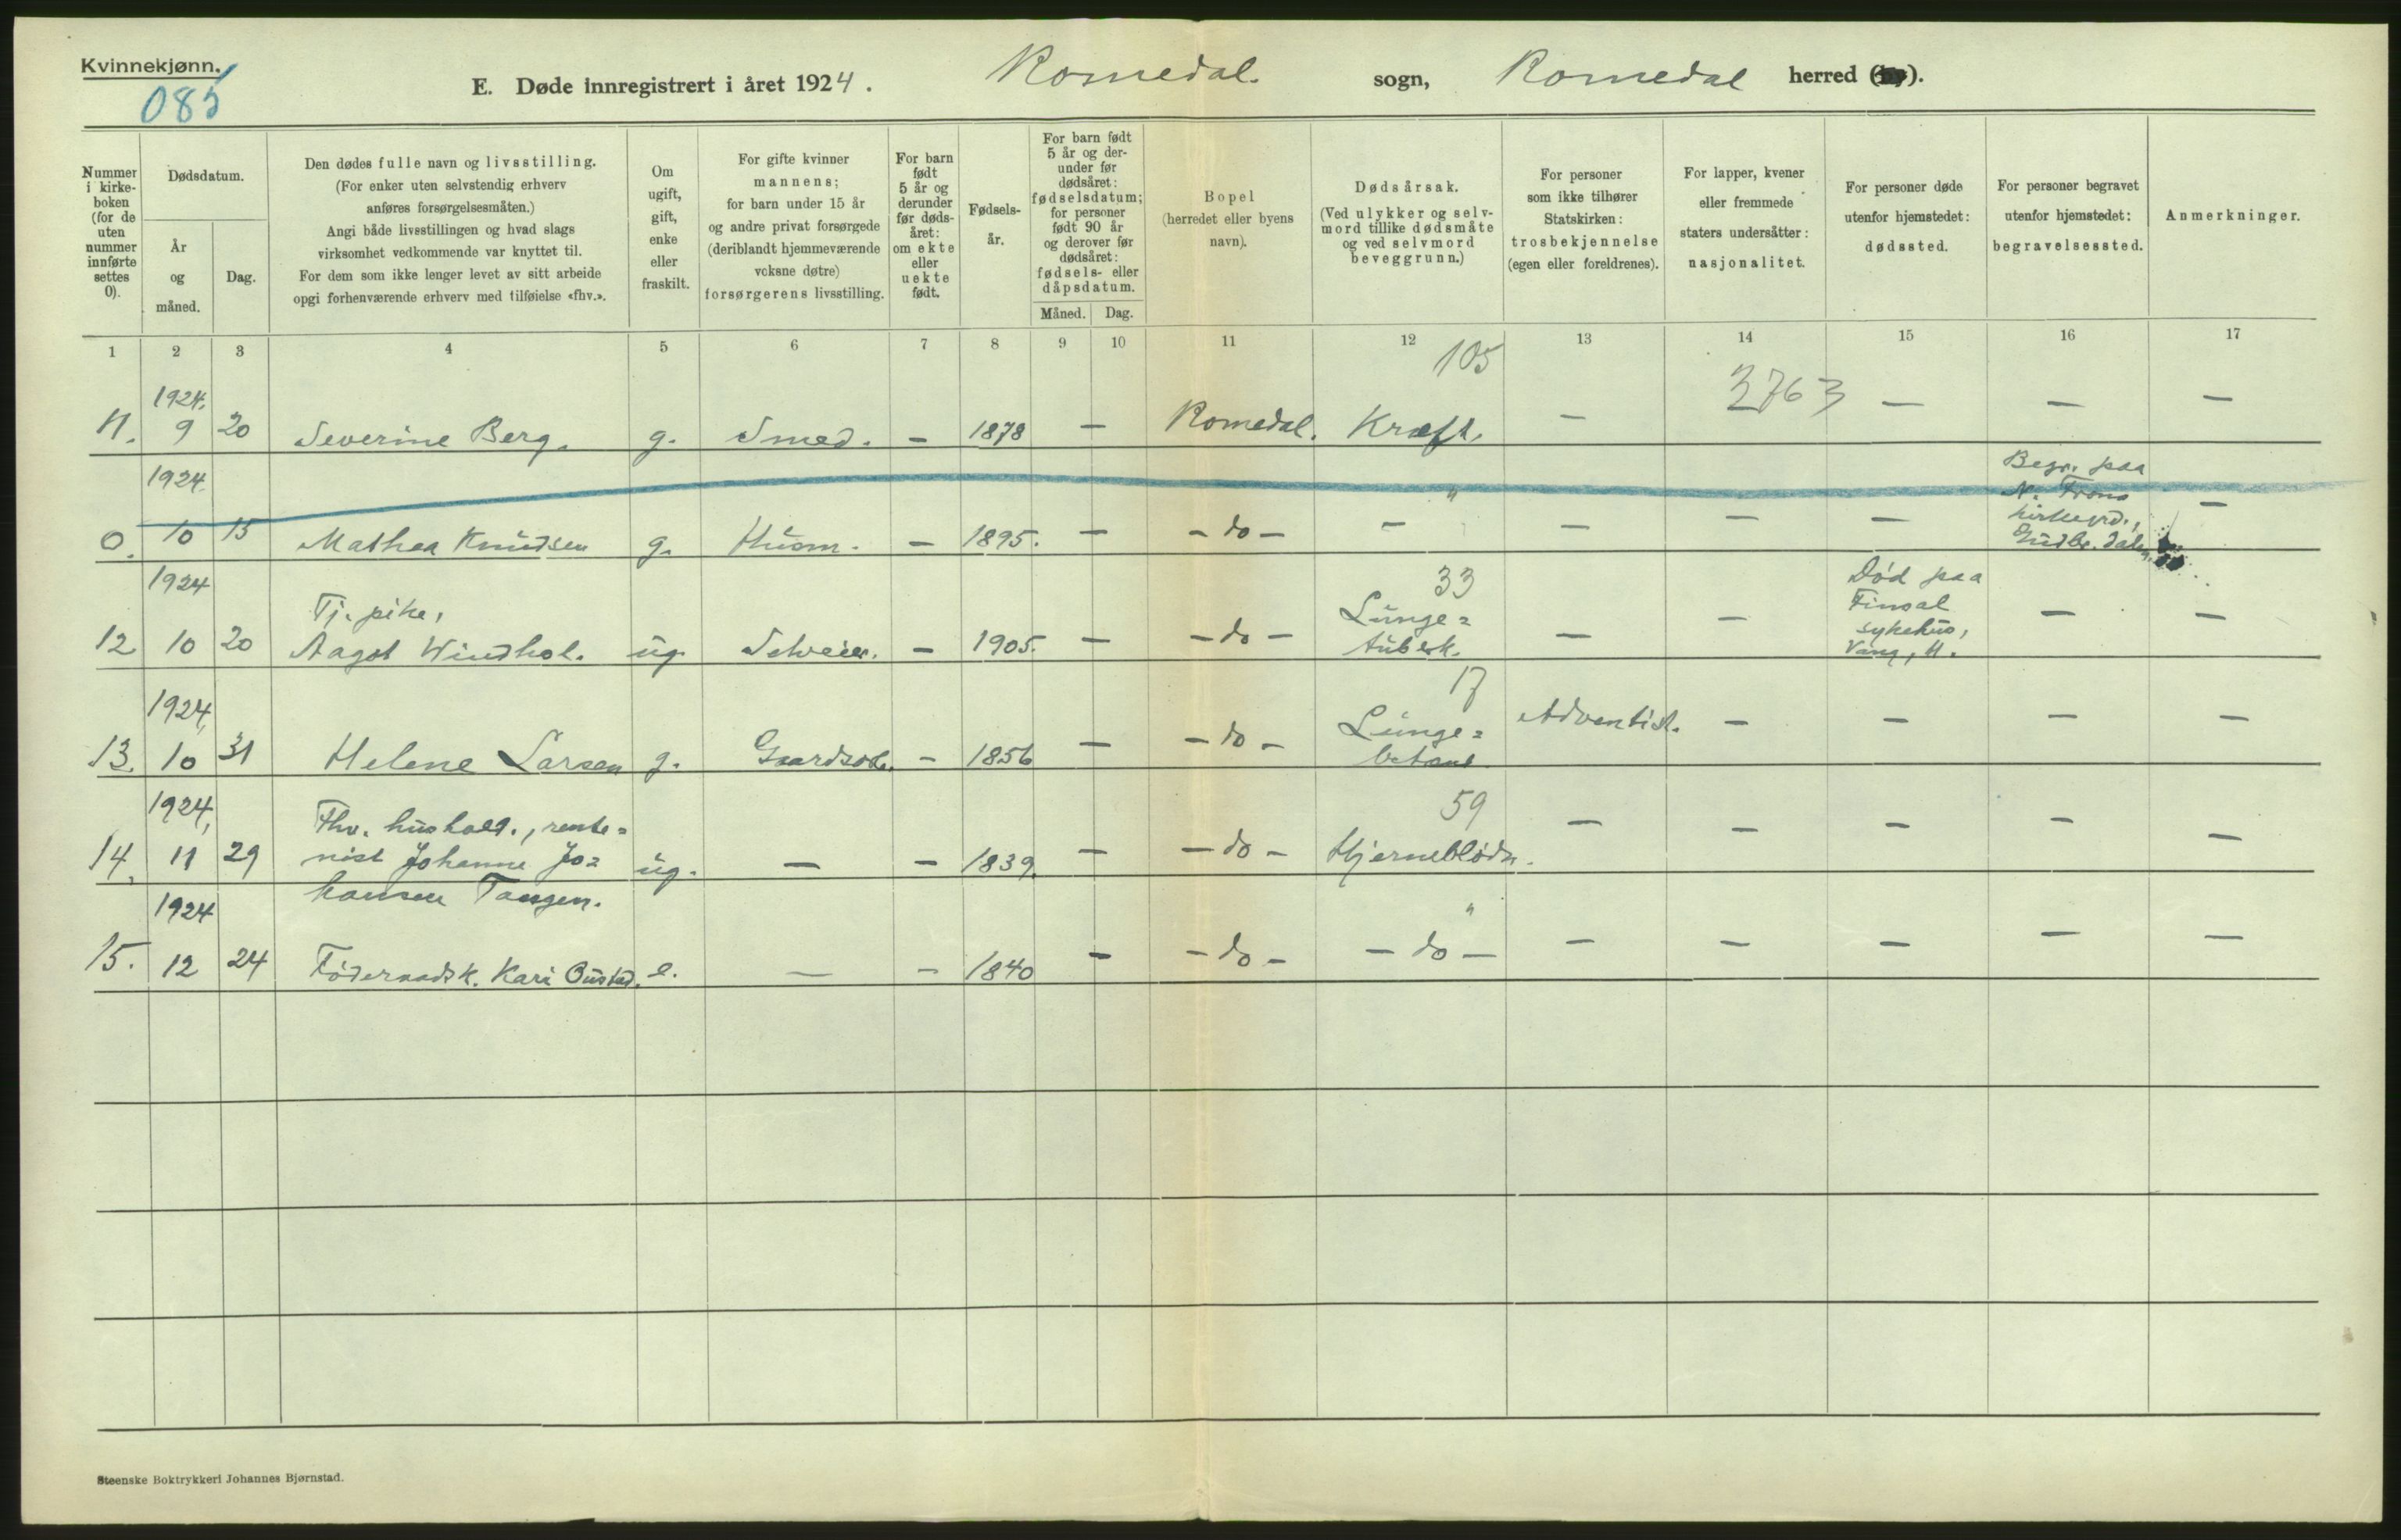 Kvinnekjønn.
085
E. Døde innregistrert i året 1924. Romedal. sogn, Romedal herred (by).
Nummer i kirkeboken (for de uten nummer innførte settes 0).
Dødsdatum.
År og måned.
Dag.
Den dødes fulle navn og livsstilling.
(For enker uten selvstendig erhverv
anføres forsørgelsesmåten.)
Angi både livsstillingen og hvad slags
virksomhet vedkommende var knyttet til.
For dem som ikke lenger levet av sitt arbeide
opgi forhenværende erhverv med tilføielse «fhv.».
Om ugift, gift, enke eller fraskilt.
For gifte kvinner
mannens;
for barn under 15 år
og andre privat forsørgede
(deriblandt hjemmeværende
voksne døtre)
forsørgerens livsstilling.
For barn født 5 år og derunder før dødsåret: om ekte eller uekte født.
Fødselsår.
For barn født
5 år og der-
under før
dødsåret:
fødselsdatum;
for personer
født 90 år
og derover før
dødsåret:
fødsels- eller
dåpsdatum.
Måned. Dag.
Bopel
(herredet eller byens
navn).
Dødsårsak.
(Ved ulykker og selv-
mord tillike dødsmåte
og ved selvmord
beveggrunn.)
For personer
som ikke tilhører
Statskirken:
trosbekjennelse
(egen eller foreldrenes).
For lapper, kvener
eller fremmede
staters undersåtter:
nasjonalitet.
For personer døde
utenfor hjemstedet:
dødssted.
For personer begravet
utenfor hjemstedet:
begravelsessted.
Anmerkninger.
1 2 3 4 5 6 7 8 9 10 11 12 13 14 15 16 17
105
3763
1924.
11. 9 20 Severine Berg. g. Smed. - 1878 - Romedal. Kræft. - - - -
1924. "
Begr. paa
N. Frons
kirkegrd.,
Gudbr. dalen.
0. 10 15 Mathea Knudsen g. Husm. - 1895. - - do - - - - - -
1924
33
Tj. pike,
12 10 20 Aagot Windhol. ug. Sveiser. - 1905. - - do - Lunge=
tuberk. - -
Død paa
Finsal
sykehus,
Vang, H.
- -
1924,
17
13. 10 31 Helene Larsen g. Gaardsbr. - 1856 - - do - Lunge=
betænd. Adventist. - - - -
1924,
59
Fhv. hushold., rente=
14. 11 29 nist Johanne Jo= ug. - - 1839. - - do - Hjerneblødn. - - - - -
hansen Tangen.
1924 "
15. 12 24 Föderaadsk. Kari Oustad. e. - - 1840 - - do - - do - - - - - -
Steenske Boktrykkeri Johannes Bjørnstad.